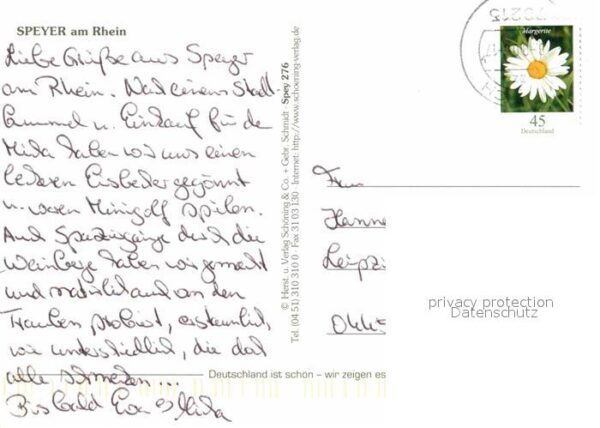 SPEYER am Rhein
Liebe Grüße aus Speyer
am Rhein. Nach einem Stadt-
bummel u. Einkauf für die
Mira haben wir uns einen
leckeren Eisbecher gegönnt
u. waren Minigolf spielen.
Auch Spaziergänge durch die
Weinberge haben wir gemacht
und natürlich auch an den
Trauben probiert, erstaunlich,
wie unterschiedlich, die doch
alle schmecken ...
Bis bald Eva &
© Herst. u. Verlag Schöning & Co. + Gebr. Schmidt · Spey 276
Tel. (04 51) 310 310 0 · Fax 31 03 130 · Internet: http://www.schoening-verlag.de
Deutschland ist schön – wir zeigen es
Margerite
45
Deutschland
Frau
Hanne
Leipzi
privacy protection
Datenschutz